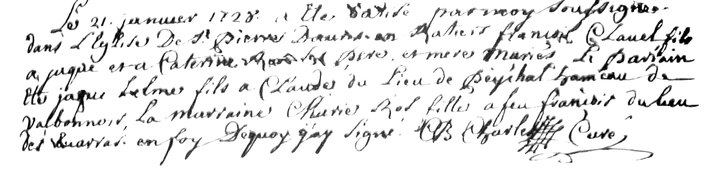 Le 21. janvier 1728. a ete Batisé par moy soussigné
dans L'eglise De St pierre françois Clauel fils
a juque et a Caterine Pere et mere mariés. Le parrain
ete jaque helme fils a Claude du Lieu de hameau de
Valbonnois, La marraine Marie Ros fille a feu françois du lieu
dés en foy Dequoy jay signé. Charles Curé